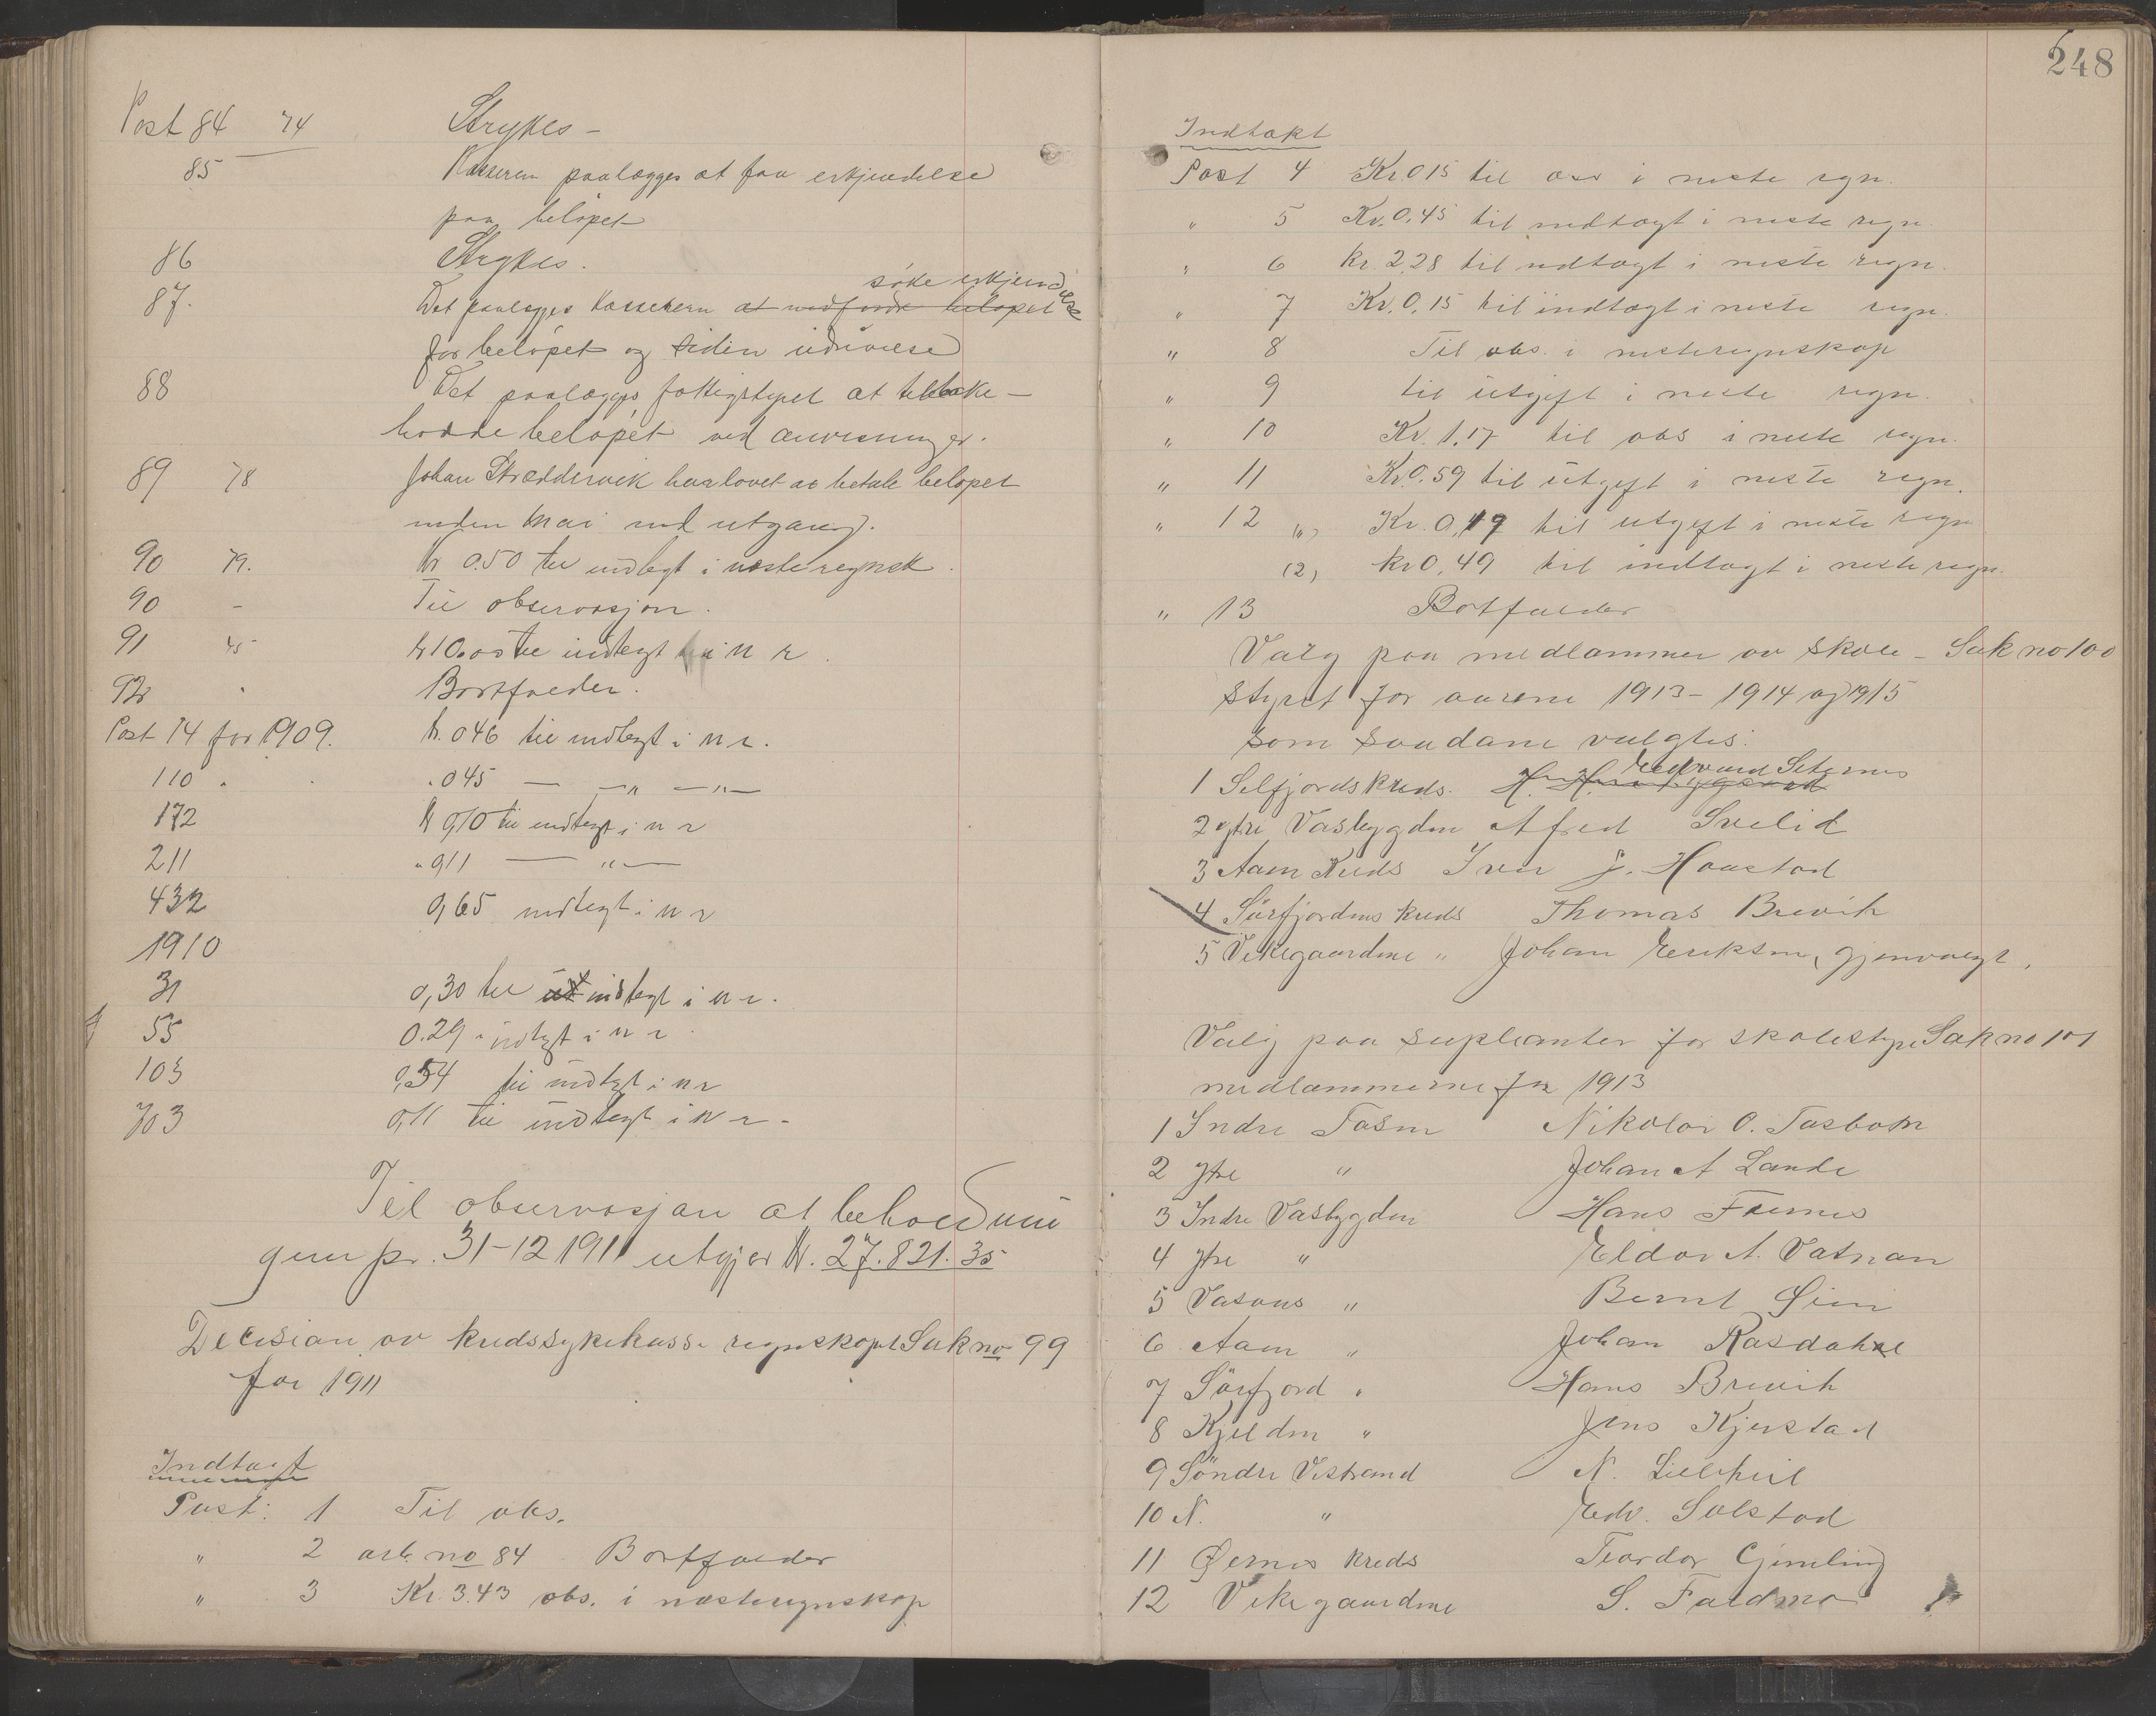 Post 84 74 Strykes -
85 Kasseren paalægges at faa erkjendelse
paa beløpet
86 Strykes.
søke erkjendelse
87. Det paalægges kasseren at beløpet
for beløpet og siden
88 Det paalægges fattigstyret at tilbake-
holde beløpet ved anvisninger.
89 78 Johan Stræddervik har lovet at betale beløpet
inden mai md utgang.
90 79. Kr 0.50 til indtegt i næste regnsk.
90 - Til observasjon.
91 til indtegt i n r.
92 " Bortfalder.
Post 14 for 1909. Kr. 046 til indtegt i n r.
110 " . 045 — —"— —"—
172 Kr 0,10 til indtegt i n r
211 " 0,11 — "—
432 0,65 indtegt i n r
1910
31 0,30 til ut indtegt i n r.
55 0.29 " indtegt i n r.
103 0,54 til indtegt i n r
703 0,11 til indtegt i n r -
Til observasjon at beholdnin
gen pr. 31-12 1911 utgjør Kr. 27.821.35
Decisian av kredssykekasse regnskapet Sak no 99
for 1911
Indtægt
Post: 1 Til obs.
" 2 no 84 Bortfalder
" 3 Kr. 3.43 obs. i næste regnskap
248
Indtækt
Post 4 Kr. 0 15 til obs i neste regn.
" 5 Kr. 0,45 til indtægt i neste regn.
" 6 Kr. 2,28 til indtægt i neste regn.
" 7 Kr. 0,15 til indtægt i neste regn.
" 8 Til obs. i nesteregnskap
" 9 til utgift i neste regn.
" 10 Kr. 1,17 til obs i neste regn.
" 11 Kr. 0.59 til utgift i neste regn.
" 12 (1) Kr. 0,19 til utgift i neste regn
(2) Kr 0,49 til indtægt i neste regn.
" 13 Bortfalder
Valg paa medlemmer av skole - Sak no 100
styret for aarene 1913 - 1914 og 1915
som saadane valgtes:
Edvard Seternes
1 Selfjords kreds. H. H.
2 ytre Vasbygden Alfred Svelid
3 Aam Kreds Iver J. Haastad
4 Sørfjordens kreds Thomas Brevik
5 Vikegaardene " Johan Eriksen, gjenvalgt.
Valg paa supleanter for skolestyre Sak no 101
medlemmerne for 1913
1 Indre Tosen Nikolai O. Tosbotn
2 ytre " Johan A Lande
3 Indre Vasbygden Hans
4 ytre " Eldor A. Vatnan
5 Vasaas " Bernt
6 Aam " Johan
7 Sørfjord " Hans Brevik
8 Kjelden " Jens Kjerstad
9 Søndre Vestrand N.
10 N. " Edv. Solstad
11 Øernes kreds Teodor Gimling
12 Vikegaardene S. Faldmo